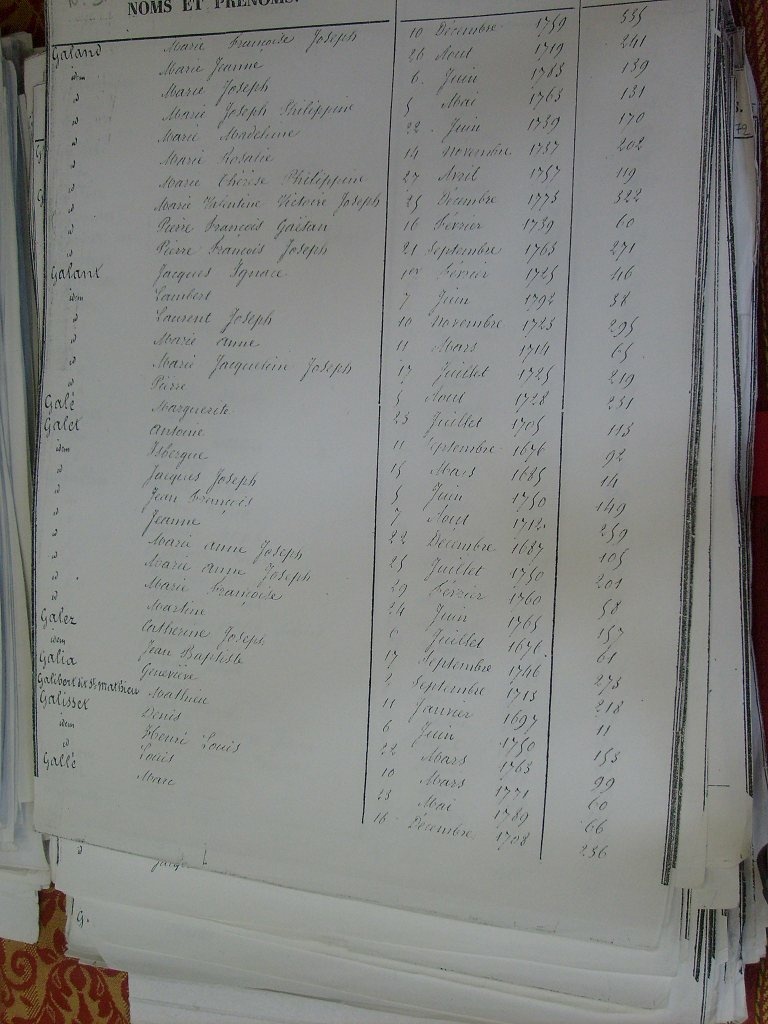 NOMS ET PRÉNOMS.
Galand Marie Françoise Joseph 10 Décembre 1759 335
idem Marie Jeanne 26 Aout 1719 241
id Marie Joseph 6 Juin 1763 139
id Marie Joseph Philippine 5 Mai 1763 131
id Marie Madeleine 22 Juin 1739 170
id Marie Rosalie 14 Novembre 1737 202
id Marie Thérèse Philippine 27 Avril 1757 119
id Marie Valentine Victoire Joseph 25 Décembre 1773 322
id Pierre François Gaëtan 16 Février 1739 60
id Pierre François Joseph 21 Septembre 1763 271
Galant Jacques Ignace 1er Février 1725 46
idem Lambert 7 Juin 1792 38
id Laurent Joseph 10 Novembre 1723 295
id Marie Anne 11 Mars 1714 65
id Marie Jacqueline Joseph 17 Juillet 1725 219
id Pierre 5 Aout 1728 231
Galé Marguerite 23 Juillet 1705 113
Galet Antoine 11 Septembre 1676 92
idem Isbergue 15 Mars 1685 14
id Jacques Joseph 5 Juin 1750 149
id Jean François 7 Aout 1712 259
id Jeanne 22 Décembre 1687 105
id Marie Anne Joseph 25 Juillet 1750 201
id Marie Anne Joseph 29 Février 1760 58
id Marie Françoise 24 Juin 1765 157
id Martine 6 Juillet 1676 61
Galez Catherine Joseph 17 Septembre 1746 273
idem Jean Baptiste 2 Septembre 1713 218
Galia Geneviève 11 Janvier 1697 11
Galibert dit St Mathieu Mathieu 6 Juin 1750 153
Galisset Denis 22 Mars 1763 99
idem Henri Louis 10 Mars 1771 60
id Louis 23 Mai 1789 66
Gallé Marc 16 Décembre 1708 236
G.